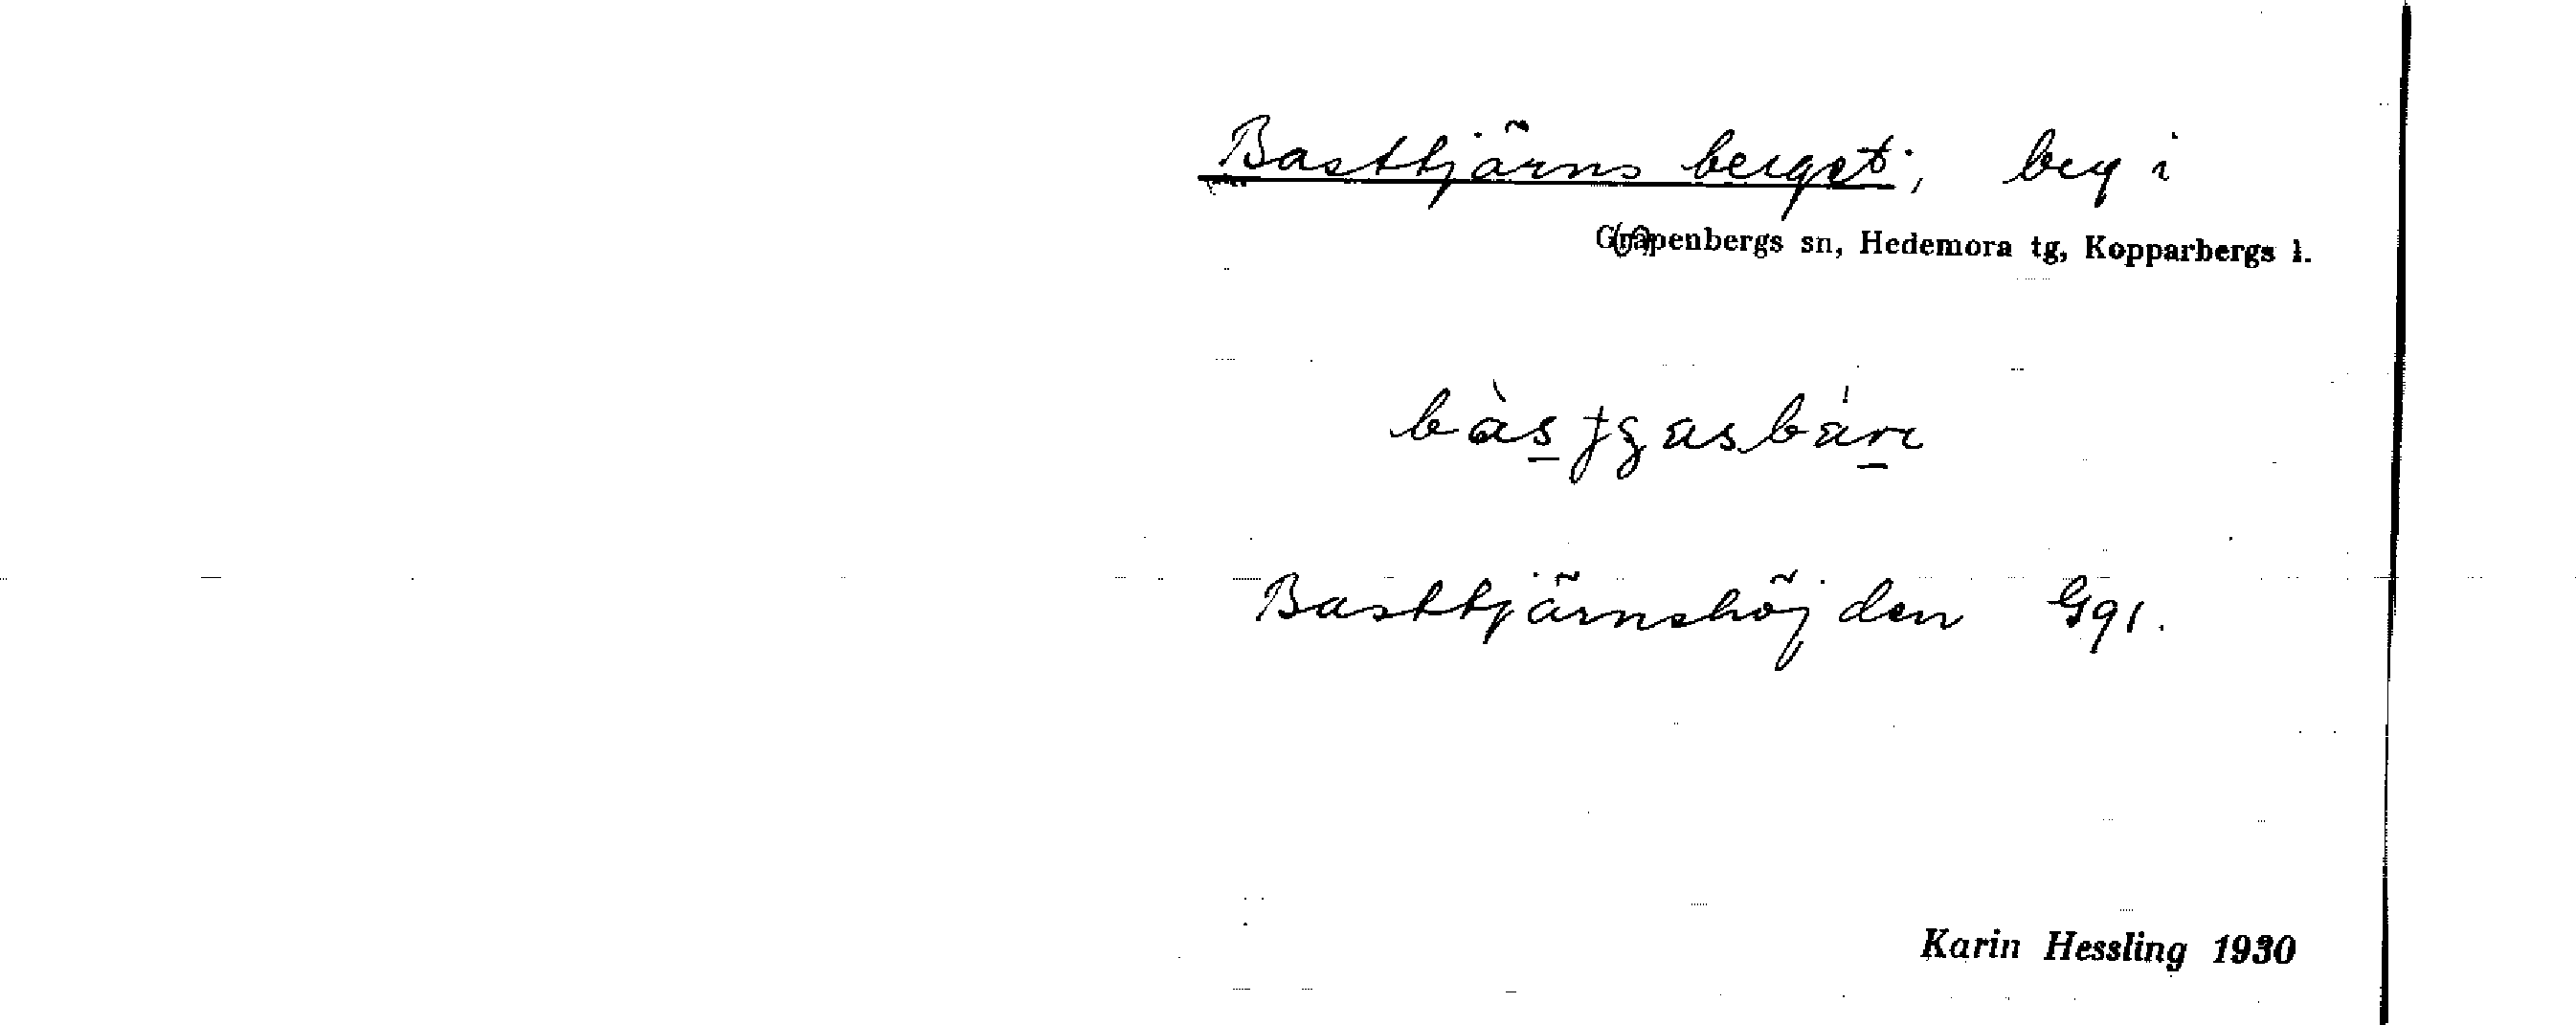 Basttjärns berget, beg i
Garpenbergs sn, Hedemora tg, Kopparbergs l.
Basttjärnshöjden Gg1.
Karin Hessling 1930